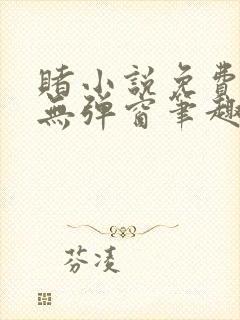 賭小説免費
無弹窗筆趣
芬凌